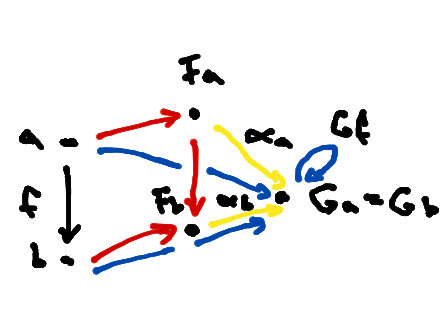 Fa
a
αa
Gf
f
Fb
αb
Ga=Gb
b